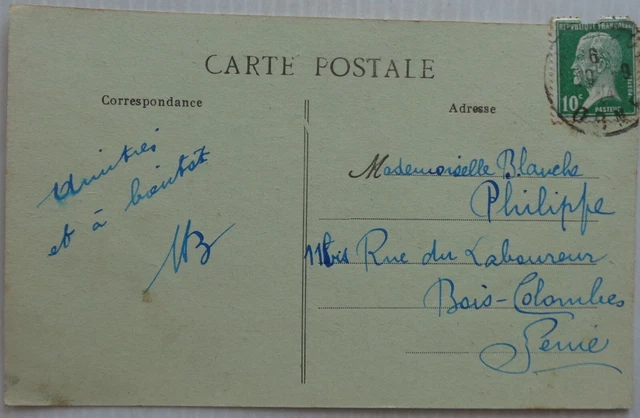 CARTE POSTALE
Correspondance
Adresse
REPUBLIQUE FRANCAISE
10c
PASTEUR
POSTES
6
9
ORN
Amitiés
et à bientôt
Mademoiselle Blanche
Philippe
11bis Rue du Laboureur
Bois-Colombes
Seine